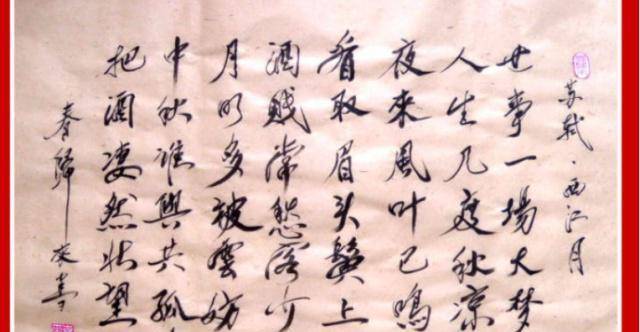 苏轼·西江月
世事一場大梦
人生几度秋凉
夜來風叶已鳴
看取眉头鬓上
酒贱常愁客少
月明多被雲妨
中秋谁與共孤
把酒凄然北望
春歸